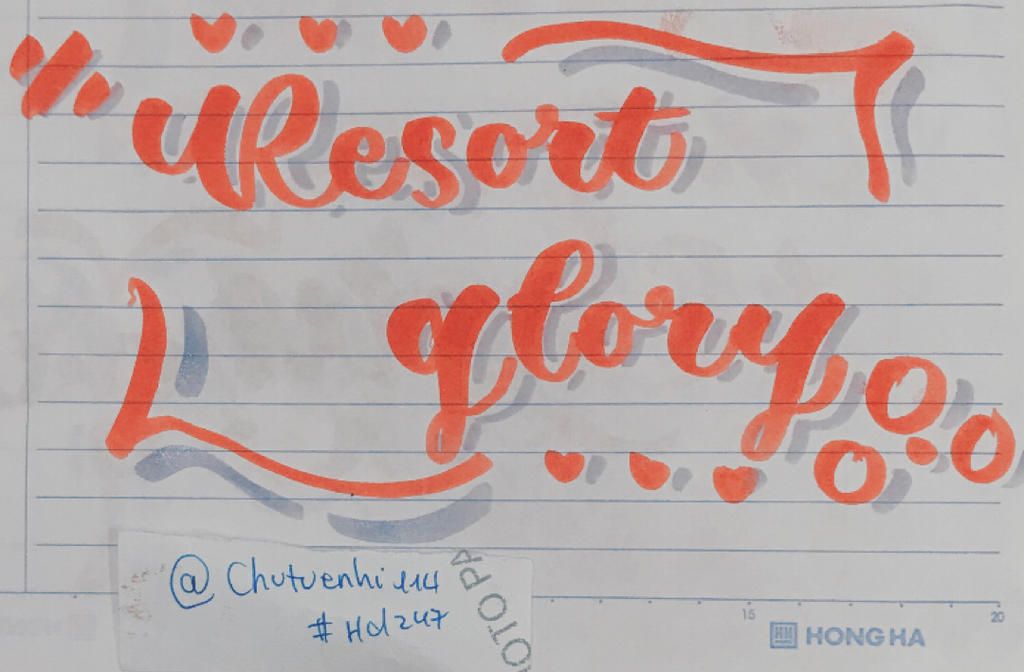 Resort
glory
@Chutuenhi114
#Hd247
OTOPA
15 20
HONG HA